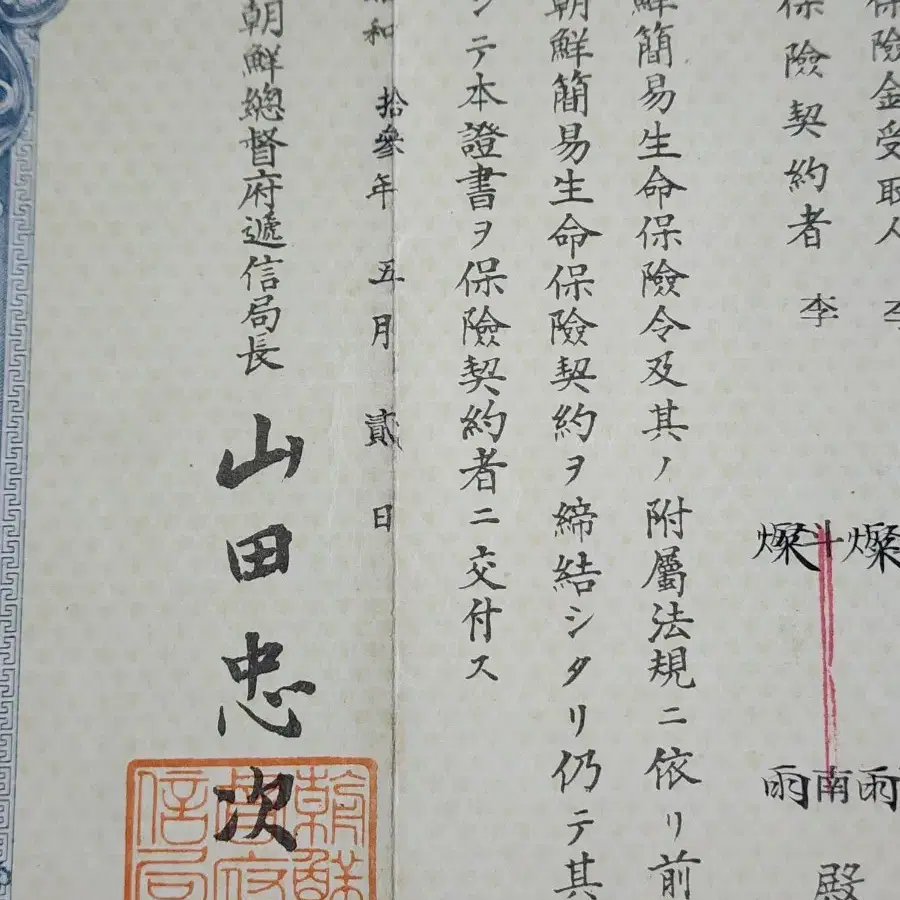 保險金受取人 李 燦雨
保險契約者 李 斗南 燦雨 殿
鮮簡易生命保險令及其ノ附屬法規ニ依リ前
朝鮮簡易生命保險契約ヲ締結シタリ仍テ其
シテ本證書ヲ保險契約者ニ交付ス
和 拾參年 五月 貳日
朝鮮總督府遞信局長 山田忠次
朝鮮